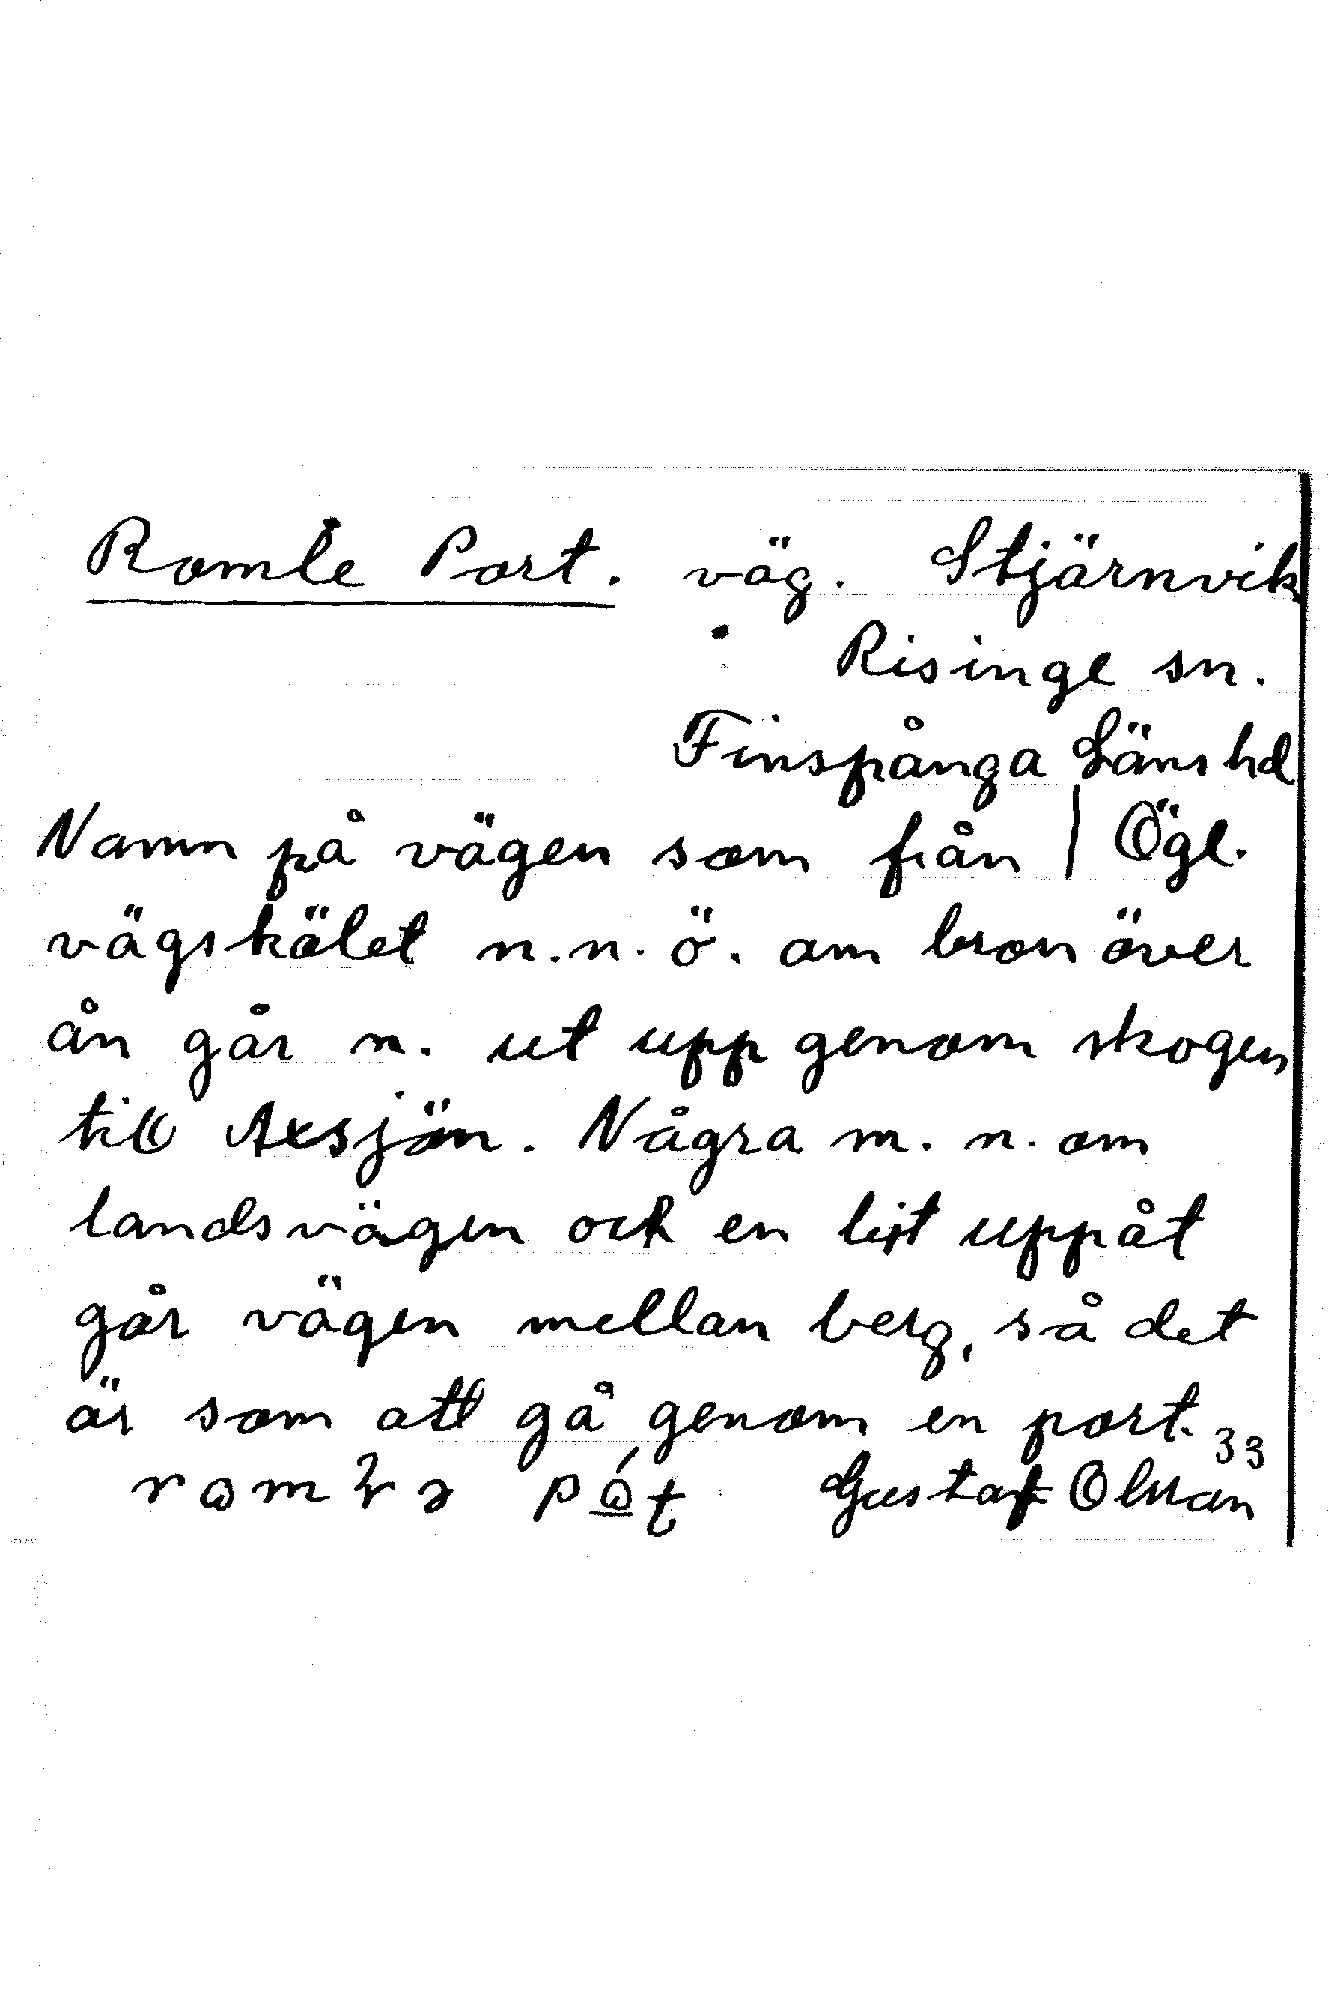 Romle Port. väg. Stjärnvik
Risinge sn.
Finspånga Läns hd
Namn på vägen som från | Ögl.
vägskälet n.n.ö. om bron över
ån går n. ut upp genom skogen
till Axsjön. Några m. n. om
landsvägen ock en bit uppåt
går vägen mellan berg, så det
är som att gå genom en port.
33
Gustaf Olsson